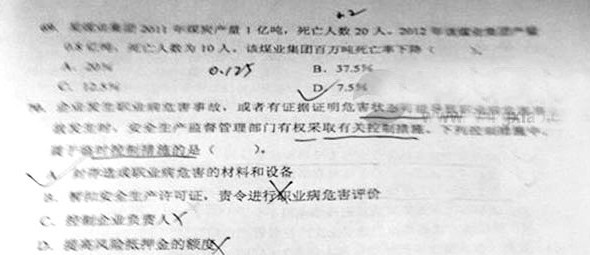 +2
69. 某煤业集团2011年煤炭产量1亿吨，死亡人数20人。2012年该煤业集团产量
0.8亿吨，死亡人数为10人，该煤业集团百万吨死亡率下降（　　）。
A. 20%　0.125　B. 37.5%
C. 12.5%　D. 7.5%
70. 企业发生职业病危害事故，或者有证据证明危害状态可能导致职业病危害事
故发生时，安全生产监督管理部门有权采取有关控制措施。下列控制措施中，
属于临时控制措施的是（　　）。
A. 封存造成职业病危害的材料和设备
B. 暂扣安全生产许可证，责令进行职业病危害评价
C. 控制企业负责人
D. 提高风险抵押金的额度